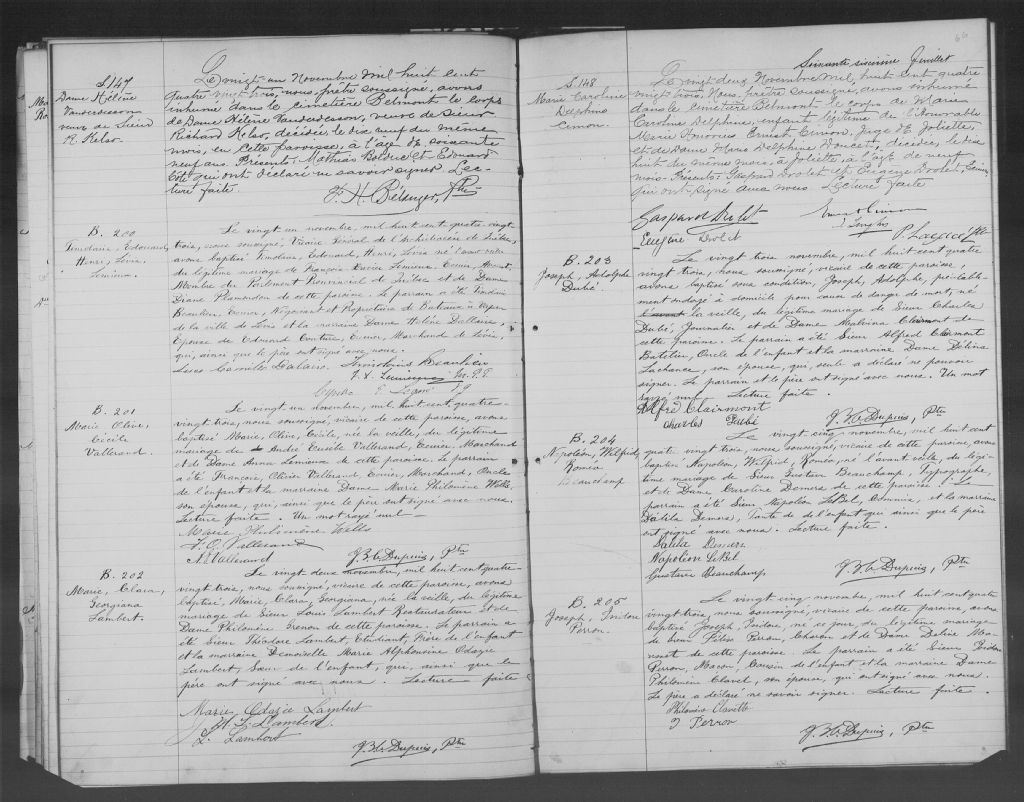 S. 147
Dame Hélène
Vanderdesson
veuve de Sieur
R. Kelso.
Le vingt-un Novembre mil huit cent
quatre vingt trois, nous, prêtre soussigné, avons
inhumé dans le cimetière Belmont le corps
de Dame Hélène Vanderdesson, veuve de Sieur
Richard Kelso, décédée le dix neuf du même
mois, en cette paroisse, à l'age de soixante
neuf ans. Présents Mathias Bolduc et Edouard
Côté qui ont déclaré ne savoir signer. Lec-
ture faite.
F. H. Bélanger, Ptre
B. 200
Edouard,
Henri, Lévis
Lemieux.
Le vingt un novembre, mil huit cent quatre-vingt
trois, nous soussigné, Vicaire Général de l'Archidiocèse de Québec,
avons baptisé Edouard, Henri, Lévis né l'avant veille
du légitime mariage de François Lemieux, Ecuier, Avocat,
Membre du Parlement Provincial de Québec et de Dame
Diana Plamondon de cette paroisse. Le parrain a été
Beaulieu, Ecuier, Négociant et Propriétaire de Bateaux à Vapeur
de la ville de Lévis et la marraine Dame Hélène Dallaire,
Epouse de Edouard Couture, Ecuier, Marchand de Lévis,
qui, ainsi que le père ont signé avec nous.
Beaulieu
B. 201
Marie, Olive,
Cécile
Vallerand.
Le vingt un novembre, mil huit cent quatre-
vingt trois, nous soussigné, vicaire de cette paroisse, avons
baptisé Marie, Olive, Cécile, née la veille, du légitime
mariage de André Eusèbe Vallerand, Ecuier, Marchand
et de Dame Anna Lemieux de cette paroisse. Le parrain
a été François, Olivier Vallerand, Ecuier, Marchand, Oncle
de l'enfant et la marraine Dame Marie Philomène Wells,
son épouse, qui, ainsi que le père ont signé avec nous.
Lecture faite. Un mot rayé nul
Marie Philomène Wells
F. O. Vallerand
A. Vallerand
J. B. C. Dupuis, Ptre
B. 202
Marie, Clara,
Georgiana
Lambert.
Le vingt deux novembre, mil huit cent quatre
vingt trois, nous soussigné, vicaire de cette paroisse, avons
baptisé, Marie, Clara, Georgiana, née la veille, du légitime
mariage de Sieur Louis Lambert Restaurateur et de
Dame Philomène Grenon de cette paroisse. Le parrain a
été Sieur Théodore Lambert, Etudiant, Frère de l'enfant
et la marraine Demoiselle Marie Alphonsine Odazie
Lambert, Sœur de l'enfant, qui, ainsi que le
père ont signé avec nous. Lecture faite
Marie Odazie Lambert
L. Lambert
L. Lambert
J. B. C. Dupuis, Ptre
66
Soixante sixième feuillet
S. 148
Marie Caroline
Delphine
Cimon.
Le vingt deux Novembre mil, huit cent quatre
vingt trois, Nous, prêtre soussigné, avons inhumé
dans le cimetière Belmont le corps de Marie
Caroline Delphine, enfant légitime de l'Honorable
Marie Honorius Ernest Cimon, Juge de Joliette,
et de Dame Marie Delphine Doucet, décédée, le dix
huit du même mois, à Joliette, à l'âge de neuf
mois. Présents: Gaspard Drolet et Eugène Drolet,
qui ont signé avec nous. Lecture faite
Gaspard Drolet
Ernest Cimon
Eugène Drolet
B. 203
Joseph, Adolphe
Dubé.
Le vingt trois novembre, mil huit cent quatre
vingt trois, nous soussigné, vicaire de cette paroisse,
avons baptisé sous condition, Joseph, Adolphe, préalable-
ment ondoyé à domicile pour cause de danger de mort, né
la veille, du légitime mariage de Sieur Charles
Dubé, Journalier et de Dame Malvina Clairmont de
cette paroisse. Le parrain a été Sieur Alfred Clairmont
Batelier, Oncle de l'enfant et la marraine Dame Délina
Lachance, son épouse, qui, seule a déclaré ne pouvoir
signer. Le parrain et le père ont signé avec nous. Un mot
rayé nul. Lecture faite.
Alfred Clairmont
Charles Dubé
J. B. C. Dupuis, Ptre
B. 204
Napoléon, Wilfrid,
Roméo
Beauchamp
Le vingt-cinq novembre, mil huit cent
quatre vingt trois, nous soussigné, vicaire de cette paroisse, avons
baptisé Napoléon, Wilfrid, Roméo, né l'avant veille du légi-
time mariage de Sieur Gustave Beauchamp, Typographe,
et de Dame Caroline Demers de cette paroisse. Le
parrain a été Sieur Napoléon LeBel, Commis, et la marraine
Dalila Demers, Tante de l'enfant qui ainsi que le père
ont signé avec nous. Lecture faite.
Dalila Demers
Napoléon LeBel
Gustave Beauchamp
J. B. C. Dupuis, Ptre
B. 205
Joseph, Isidore
Perron.
Le vingt cinq novembre, mil huit cent quatre
vingt trois, nous soussigné, vicaire de cette paroisse, avons
baptisé Joseph, Isidore, né ce jour, du légitime mariage
de Sieur Félix Perron, Charon et de Dame Délia
de cette paroisse. Le parrain a été Sieur Isidore
Perron, Maçon, Cousin de l'enfant et la marraine Dame
Philomène Clavet, son épouse, qui ont signé avec nous.
Le père a déclaré ne savoir signer. Lecture faite.
Philomène Clavette
J Perron
J. B. C. Dupuis, Ptre